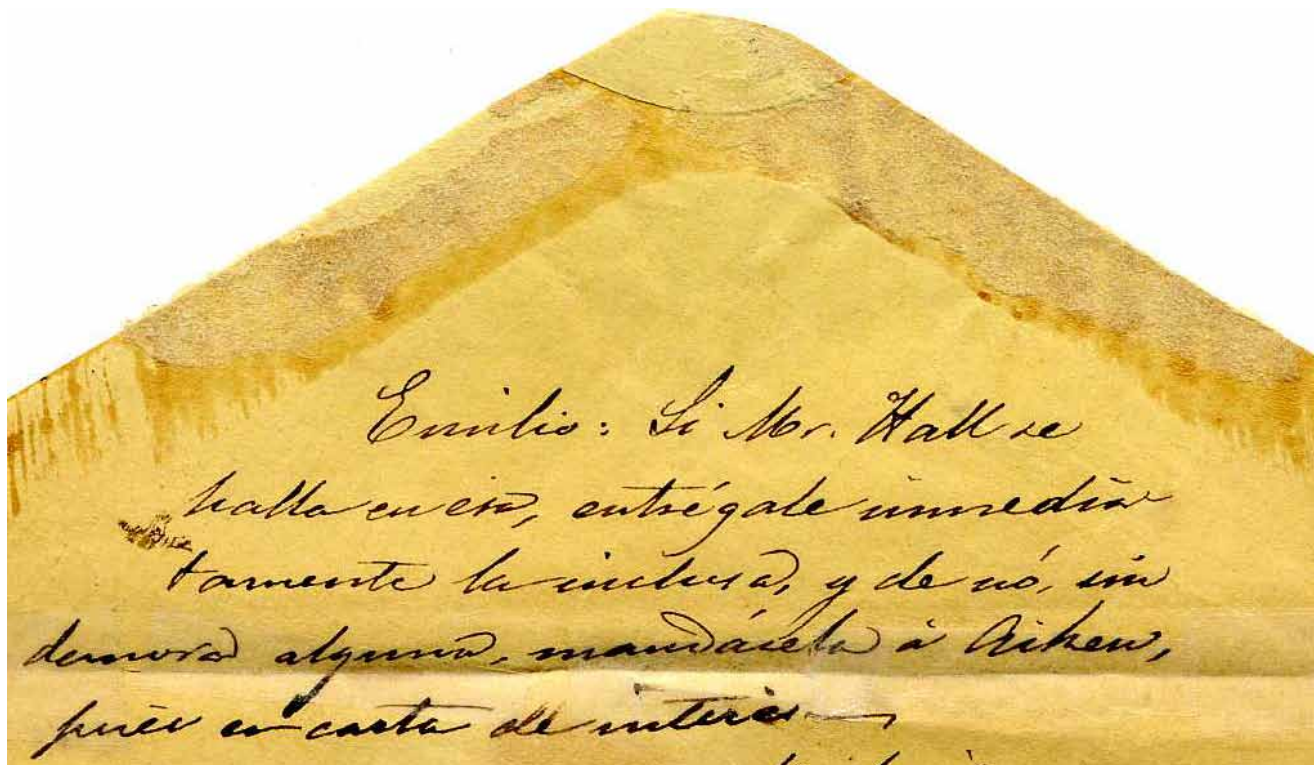 Emilio: Si Mr. Hall se
halla en esa, entrégale inmedia
tamente la inclusa, y de nó, sin
demora alguna, mandásela á Aiken,
pués es carta de interés